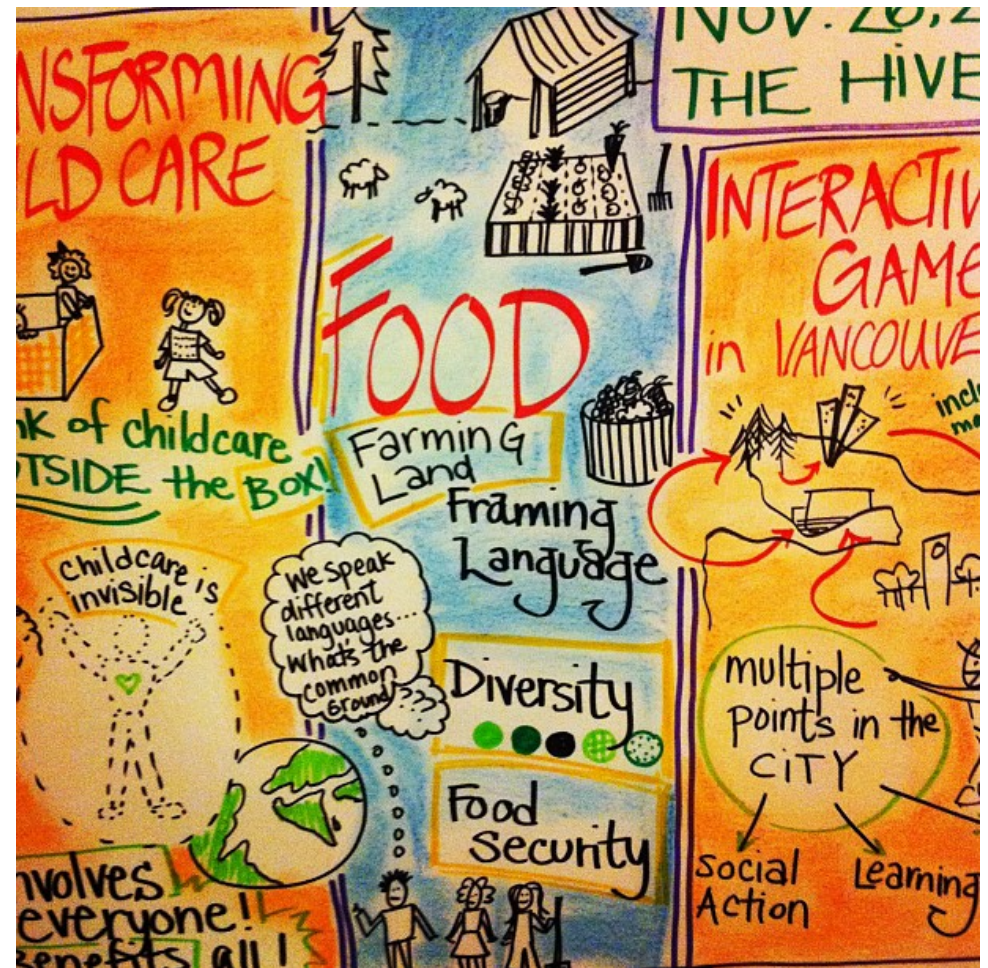 NSFORMING
LD CARE
NK of childcare
TSIDE the BOX!
childcare is
invisible
nvolves
everyone!!
Benefits all!
FOOD
Farming
Land
Framing
Language
We speak
different
languages...
Whats the
common
Ground
Diversity
Food
Security
NOV. 26, 2
THE HIVE
INTERACTIV
GAME
in VANCOUVE
incl
mo
multiple
points in the
CITY
Social
Action
Learning